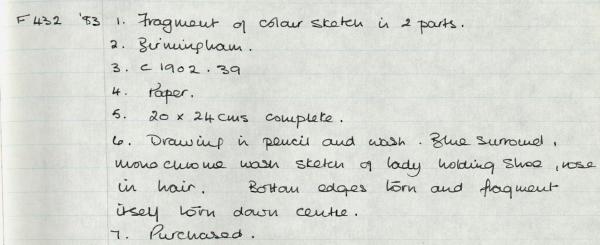 F 432 '83 1. Fragment of colour sketch in 2 parts.
2. Birmingham.
3. C 1902. 39
4. Paper.
5. 20 x 24 cms complete.
6. Drawing in pencil and wash. Blue surround,
monochrome wash sketch of lady holding shoe, rose
in hair. Bottom edges torn and fragment
itself torn down centre.
7. Purchased.